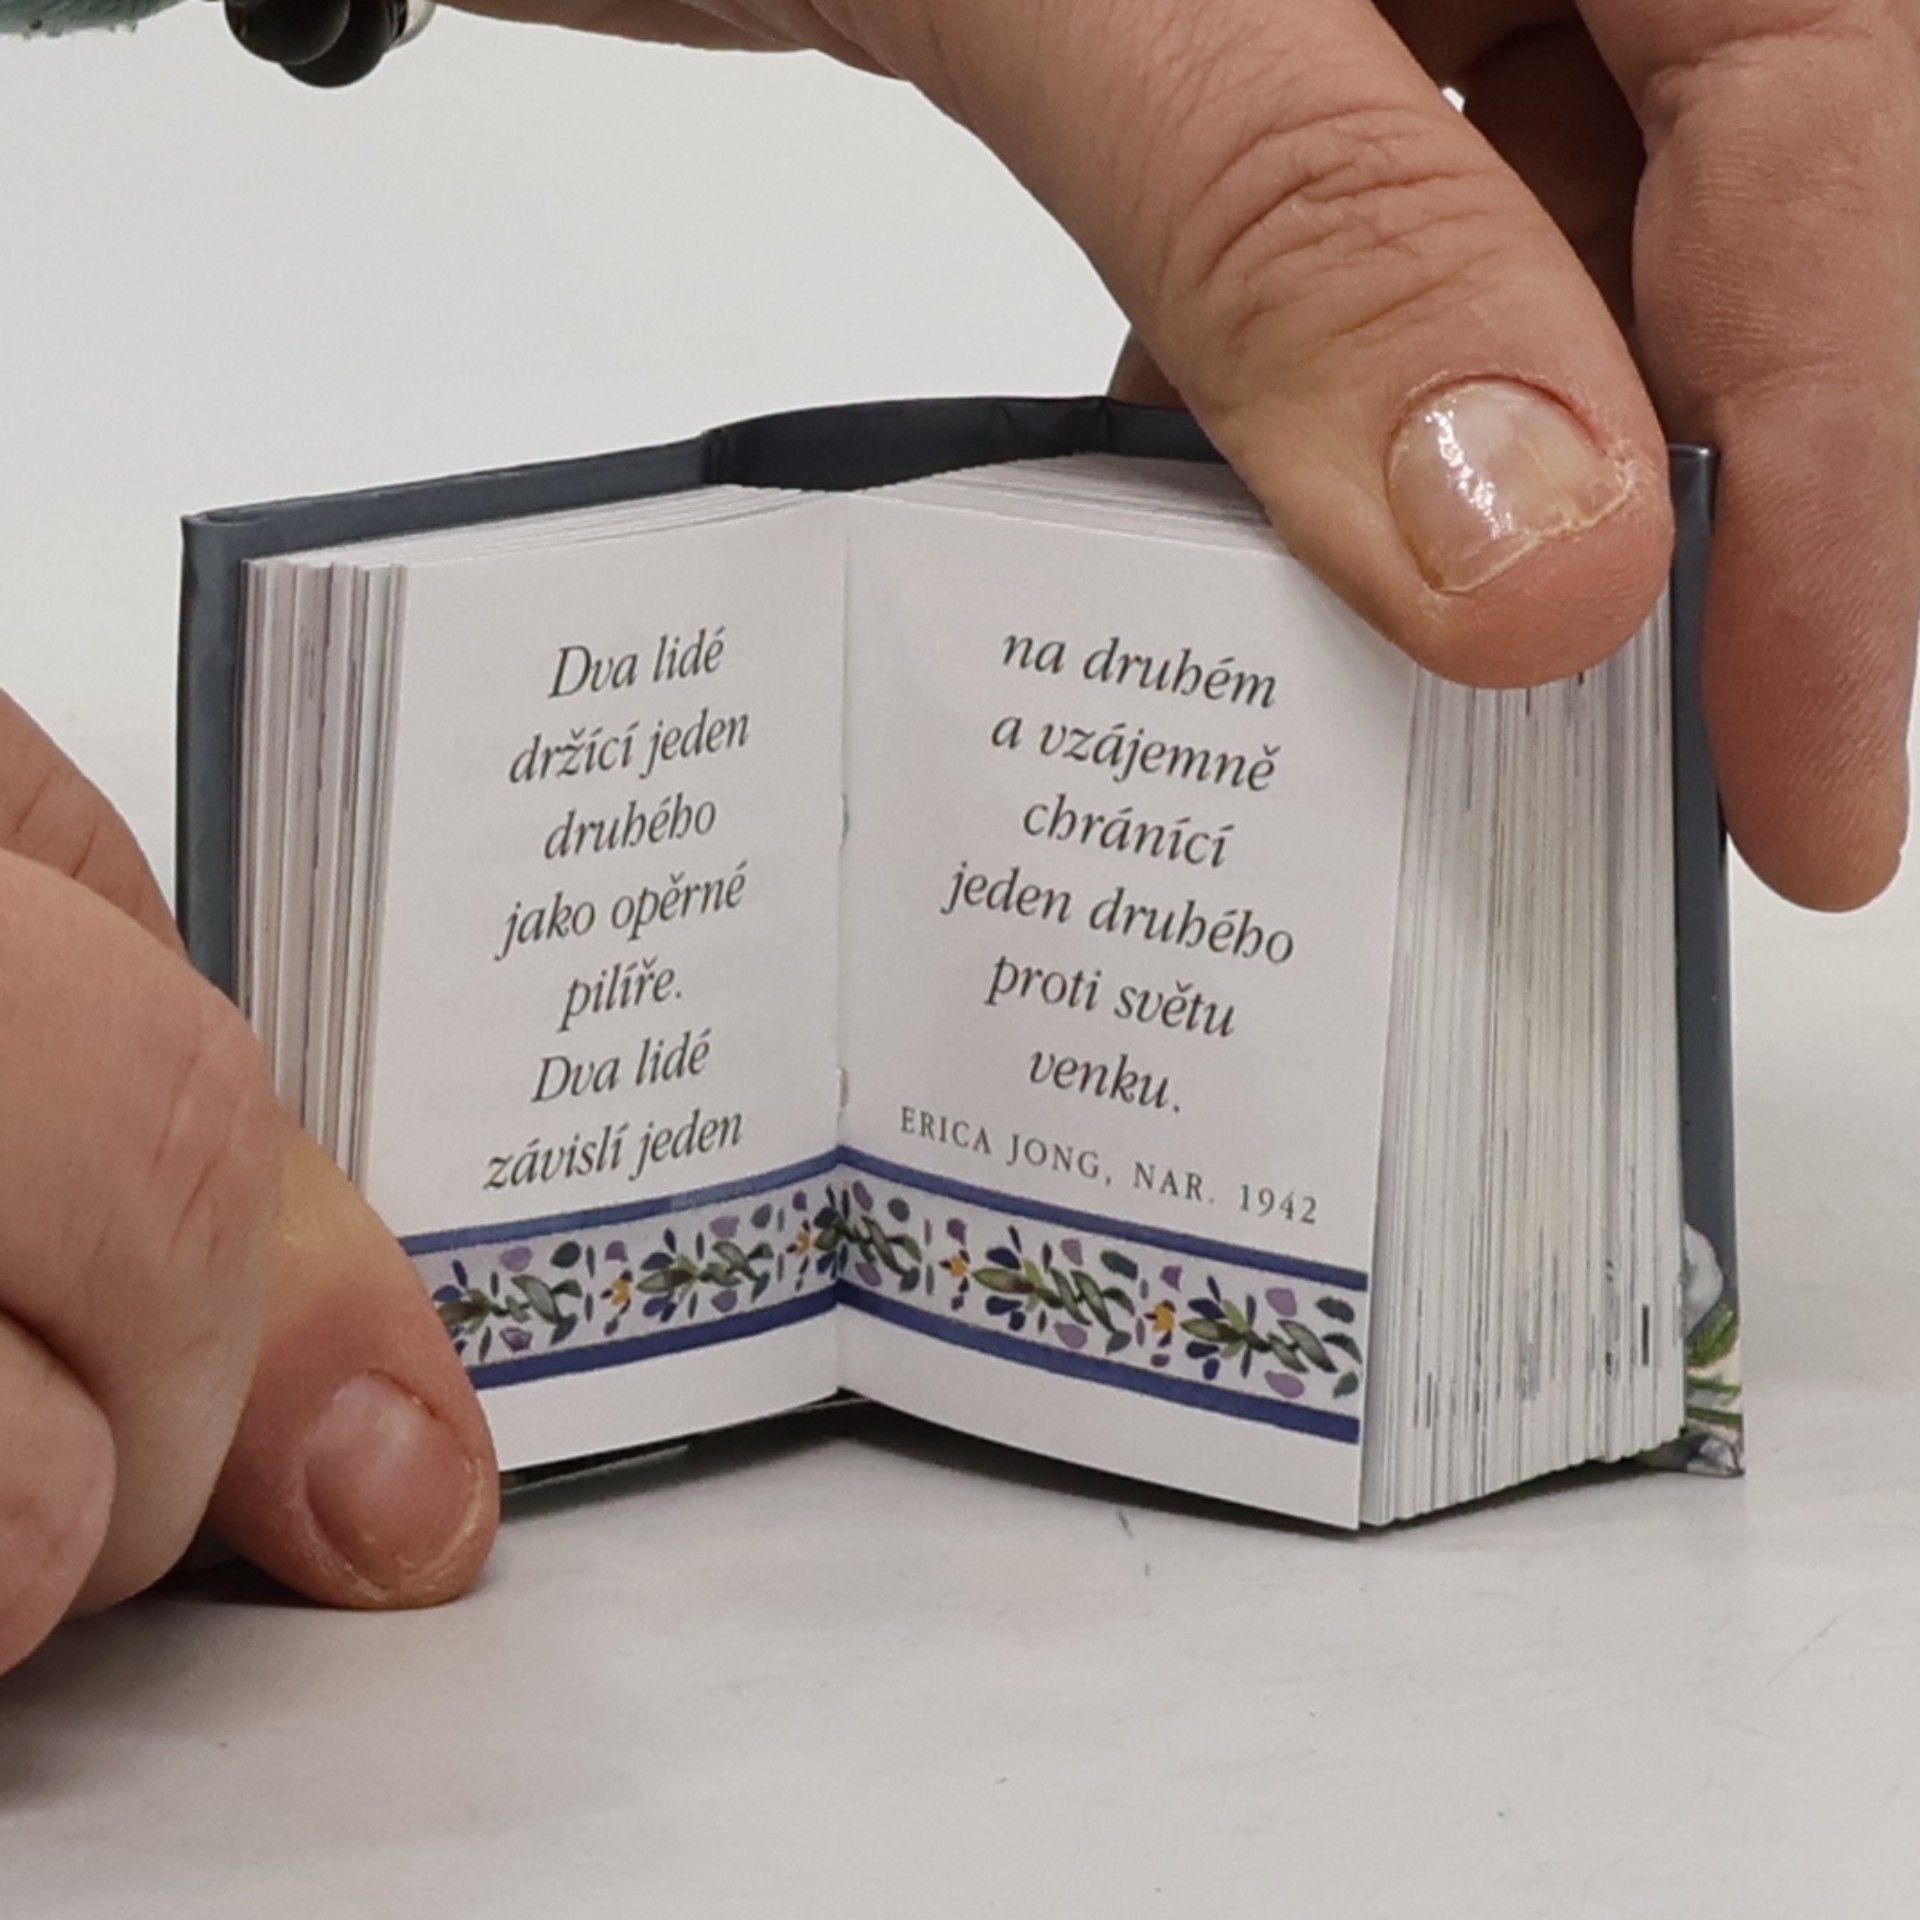 Dva lidé
držící jeden
druhého
jako opěrné
pilíře.
Dva lidé
závislí jeden
na druhém
a vzájemně
chránící
jeden druhého
proti světu
venku.
ERICA JONG, NAR. 1942